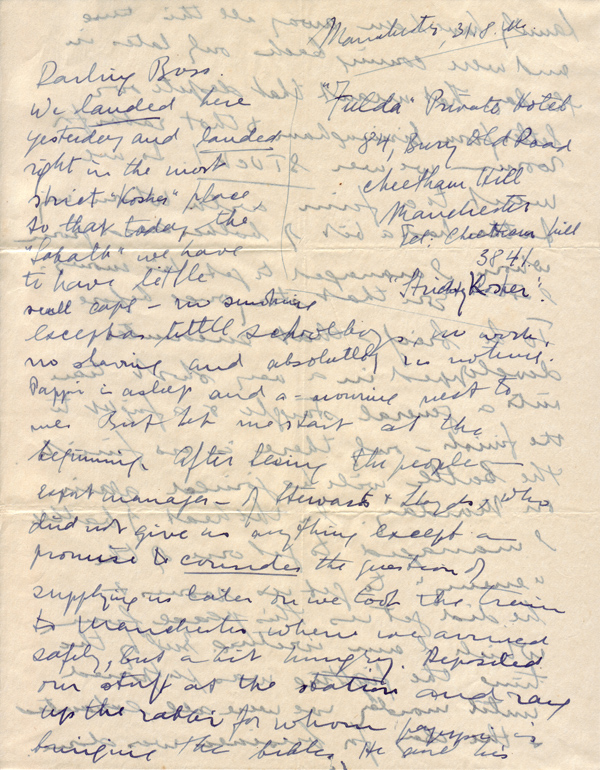 Manchester, 31.8.
Darling Boss.
"Fulda" Private Hotel
84, Bury Old Road
Cheetham Hill
Manchester
Tel: Cheetham Hill
3841
"Strictly Kosher".
We landed here
yesterday and landed
right in the most
strict "kosher" place
so that today, the
we have
to have little
scull caps – no smoking
except as little schoolboys, no work,
no shaving and absolutely no nothing.
Pappi is asleep and a-snoring next to
me. But let me start at the
beginning. After leaving the people –
export manager – of Stewarts & Lloyds, who
did not give us anything except a
promise to consider the question of
supplying us later on we took the train
to Manchester where we arrived
safely, but a bit hungry. Deposited
our stuff at the station and rang
up the rabbi for whom is
bringing the bibles. He and his